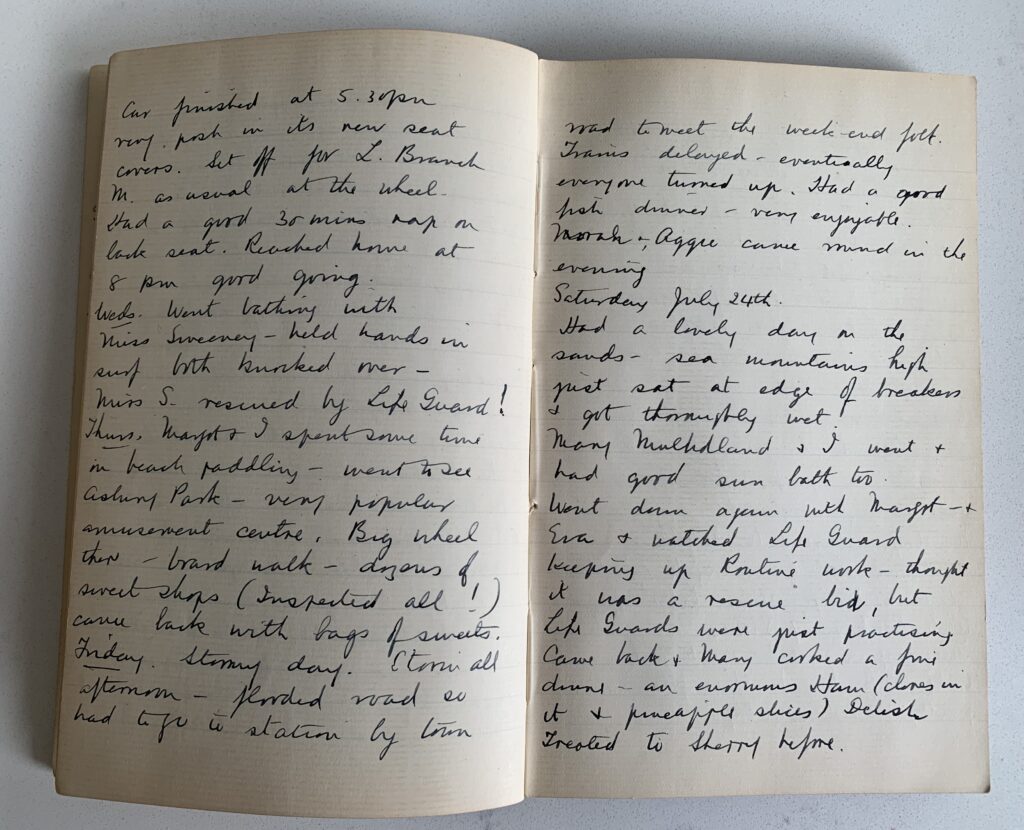 Car finished at 5.30pm
very posh in its new seat
covers. Set off for L. Branch
M. as usual at the wheel.
Had a good 30 mins nap on
back seat. Reached home at
8 pm good going.
Weds. Went bathing with
Miss Sweeney – held hands in
surf both knocked over –
Miss S. rescued by Life Guard!
Thurs. Margot & I spent some time
on beach paddling – went to see
Asbury Park – very popular
amusement centre. Big wheel
ther – board walk – dozens of
sweet shops (Inspected all!)
came back with bags of sweets.
Friday. Stormy day. Storm all
afternoon – flooded road so
had to go to station by town
road to meet the week-end folk.
Trains delayed – eventually
everyone turned up. Had a good
fish dinner – very enjoyable.
Morah & Aggie came round in the
evening
Saturday July 24th.
Had a lovely day on the
sands – sea mountains high
just sat at edge of breakers
& got thoroughly wet.
Mary Mulholland & I went &
had good sun bath too.
Went down again with Margot – &
Eva & watched Life Guard
keeping up Routine work – thought
it was a rescue bid, but
Life Guards were just practising
Came back & Mary cooked a fine
dinner – an enormous Ham (cloves in
it & pineapple slices) Delish
Treated to Sherry before.